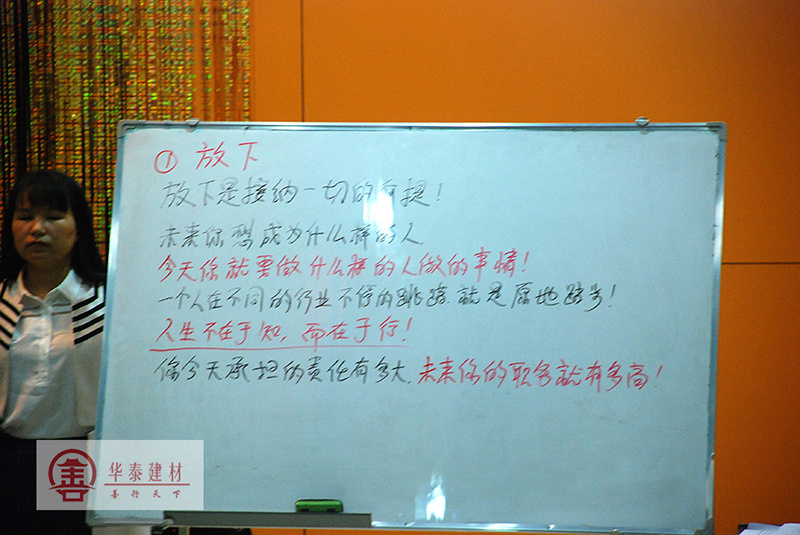 ① 放下
放下是接纳一切的前提！
未来你想成为什么样的人.
今天你就要做什么样的人做的事情！
一个人在不同的行业不停的跳跃.就是原地踏步！
人生不在于知，而在于行！
你今天承担的责任有多大.未来你的职务就有多高！
华泰建材
善行天下